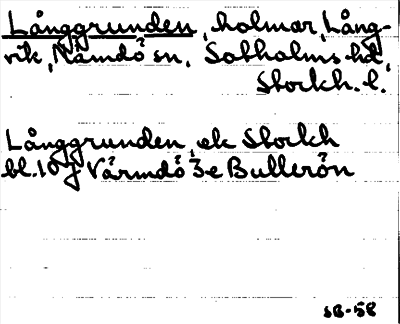 Långgrunden, holmar, Lång-
vik, Nämdö sn, Sotholms hd,
Stockh. l.
Långgrunden, ek Stockh
bl. 10 j Värmdö 3-e Bullerön
SB-58